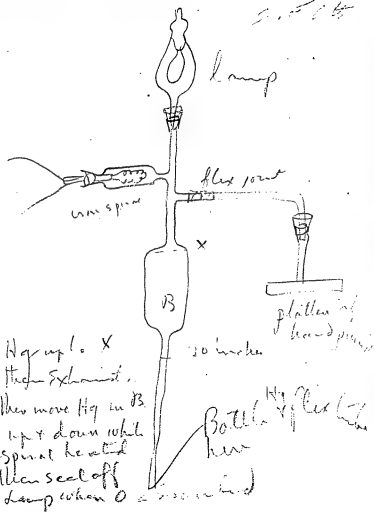 lamp
flex joint
iron spiral
x
B
platten of
hand pump
30 inches
Hg up to x
then Exhaust.
then move Hg in B
up & down while
spiral heated
then seal off
lamp when O absorbed
Bottle Hg & flex tube
here